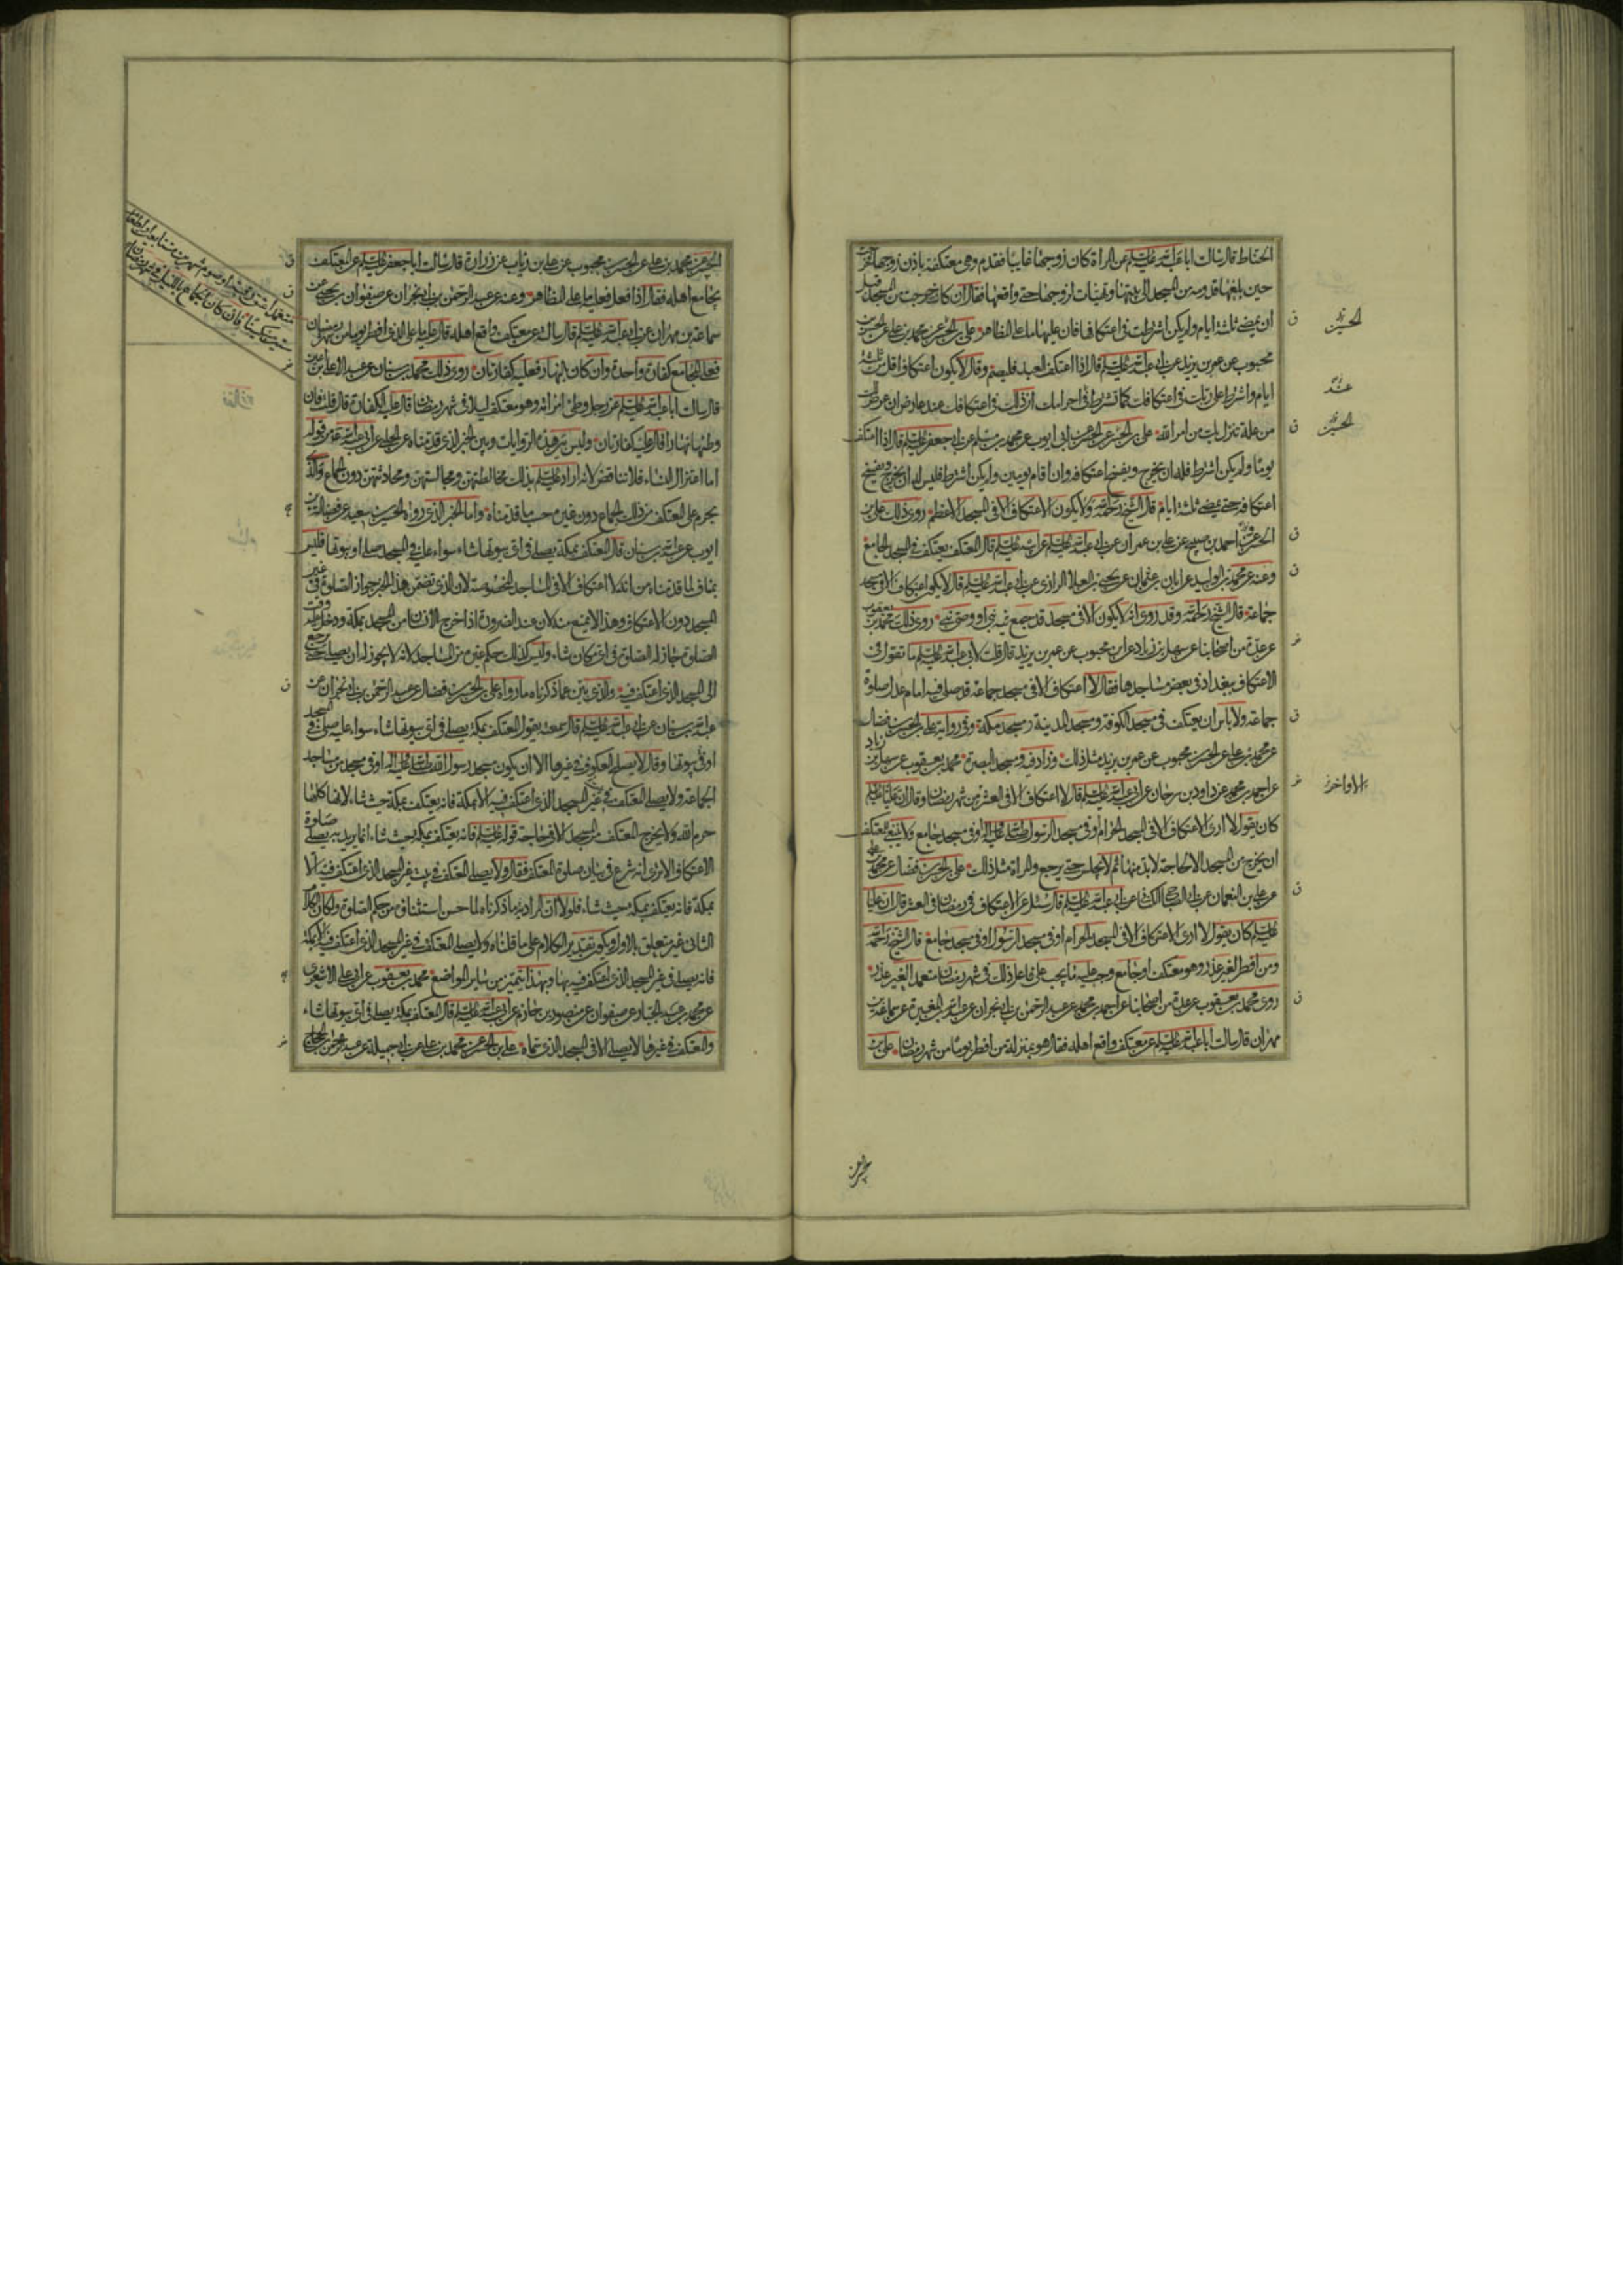 الحناط قال سالت ابا عبد الله عليه السلم عن امراة كان زوجها غايبا فقدم وهى معتكفة باذن زوجها فخرجت
حين بلغها قدومه من المسجد الى بيتها وتهيات لزوجها حتى واقعها فقال ان كانت خرجت من المسجد قبل
ان يمضى ثلثة ايام ولم يكن اشترطت فى اعتكافها فان عليها ما على المظاهر على بن الحسن عن محمد بن على عن الحسن بن
محبوب عن عمر بن يزيد عن ابى عبد الله عليه السلم قال اذا اعتكف العبد فليصم وقال لا يكون اعتكاف اقل من ثلثة
ايام واشترط على ربك فى اعتكافك كما تشترط فى احرامك ان ذلك فى اعتكافك عند عارض ان عرض لك
من علة تنزل بك من امر الله على بن الحسن عن الحسن عن ابى ايوب عن محمد بن مسلم عن ابى جعفر عليه السلم قال اذا اعتكف
يوما ولم يكن اشترط فله ان يخرج ويفسخ اعتكافه وان اقام يومين ولم يكن اشترط فليس له ان يخرج ويفسخ
اعتكافه حتى يمضى ثلثة ايام قال الشيخ رحمه الله ولا يكون الاعتكاف الا فى المسجد الاعظم روى ذلك على بن
الحسن عن احمد بن صبيح عن على بن عمران عن ابى عبد الله عليه السلم عن ابيه عليه السلم قال المعتكف يعتكف فى المسجد الجامع
وعنه عن محمد بن الوليد عن ابان بن عثمان عن يحيى بن العلاء الرازى عن ابى عبد الله عليه السلم قال لا يكون اعتكاف الا فى مسجد
جماعة قال الشيخ رحمه الله وقد روى انه لا يكون الا فى مسجد قد جمع فيه نبى او وصى نبى روى ذلك محمد بن يعقوب
عن عدة من اصحابنا عن سهل بن زياد عن ابن محبوب عن عمر بن يزيد قال قلت لابى عبد الله عليه السلم ما تقول فى
الاعتكاف ببغداد فى بعض مساجدها فقال لا اعتكاف الا فى مسجد جماعة قد صلى فيه امام عدل صلوة
جماعة ولا باس ان يعتكف فى مسجد الكوفة ومسجد المدينة ومسجد مكة وفى رواية على بن الحسن بن فضال
عن محمد بن على عن الحسن بن محبوب عن عمر بن يزيد مثل ذلك وزاد فيه ومسجد البصرة محمد بن يعقوب عن سهل بن زياد
عن احمد بن محمد عن داود بن سرحان عن ابى عبد الله عليه السلم قال لا اعتكاف الا فى العشر من شهر رمضان وقال ان عليا عليه السلم
كان يقول لا ارى الاعتكاف الا فى المسجد الحرام او فى مسجد الرسول صلى الله عليه واله او فى مسجد جامع ولا ينبغى للمعتكف
ان يخرج من المسجد الا لحاجة لا بد منها ثم لا يجلس حتى يرجع والمراة مثل ذلك على بن الحسن بن فضال عن محمد بن على
عن على بن النعمان عن ابى الصباح الكنانى عن ابى عبد الله عليه السلم قال سئل عن الاعتكاف فى رمضان فى العشر قال ان عليا
عليه السلم كان يقول لا ارى الاعتكاف الا فى المسجد الحرام او فى مسجد الرسول او فى مسجد جامع قال الشيخ رحمه الله
ومن افطر لغير عذر وهو معتكف او جامع وجب عليه ما يجب على فاعل ذلك فى شهر رمضان متعمدا لغير عذر
روى محمد بن يعقوب عن عدة من اصحابنا عن احمد بن محمد عن عبد الرحمن بن ابى نجران عن عبد الله بن المغيرة عن سماعة بن
مهران قال سالت ابا عبد الله عليه السلم عن معتكف واقع اهله فقال هو بمنزلة من افطر يوما من شهر رمضان على بن
الحسين
عند
الحسين
الاواخر
الحسن عن
الحسن عن محمد بن على عن الحسن بن محبوب عن على بن رياب عن زرارة قال سالت ابا جعفر عليه السلم عن المعتكف
يجامع اهله فقال اذا فعل فعليه ما على المظاهر وعنه عن عبد الرحمن بن ابى نجران عن صفوان بن يحيى عن
سماعة بن مهران عن ابى عبد الله عليه السلم قال سالته عن معتكف واقع اهله قال عليه ما على الذى افطر يوما من شهر رمضان
متعمدا عتق رقبة او صوم شهرين متتابعين او اطعام
ستين مسكينا فان كان الجماع بالليل فى شهر رمضان
فعلى المجامع كفارة واحدة وان كان بالنهار فعليه كفارتان روى ذلك محمد بن سنان عن عبد الاعلى بن اعين
قال سالت ابا عبد الله عليه السلم عن رجل وطئ امراته وهو معتكف ليلا فى شهر رمضان قال عليه الكفارة قال قلت فان
وطئها نهارا قال عليه كفارتان وليس بين هذه الروايات وبين الخبر الذى قدمناه عن الحلبى عن ابى عبد الله عليه السلم من قوله
اما اعتزال النساء فلا تناقض لانه اراد عليه السلم بذلك مخالطتهن ومجالستهن ومحادثتهن دون الجماع والذى
يحرم على المعتكف من ذلك الجماع دون غيره حسب ما قدمناه واما الخبر الذى رواه الحسين بن سعيد عن فضالة بن
ايوب عن عبد الله بن سنان قال المعتكف بمكة يصلى فى اى بيوتها شاء سواء عليه فى المسجد صلى او بيوتها فليس
بمناف لما قدمناه من انه لا اعتكاف الا فى المساجد المخصوصة لان الذى تضمن هذا الخبر جواز الصلوة فى غير
المسجد دون الاعتكاف وهذا لا يمتنع منه لان عند الضرورة اذا خرج الانسان من المسجد بمكة ودخل عليه وقت
الصلوة جاز له الصلوة فى اى مكان شاء وليس كذلك حكم غيره من المساجد لانه لا يجوز له ان يصلى حتى يرجع
الى المسجد الذى اعتكف فيه والذى يبين عما ذكرناه ما رواه على بن الحسن بن فضال عن عبد الرحمن بن ابى نجران عن
عبد الله بن سنان عن ابى عبد الله عليه السلم قال سمعته يقول المعتكف بمكة يصلى فى اى بيوتها شاء سواء عليه صلى فى المسجد
او فى بيوتها وقال لا يصلح العكوف فى غيرها الا ان يكون مسجد رسول الله صلى الله عليه واله او فى مسجد من مساجد
الجماعة ولا يصلى المعتكف فى غير المسجد الذى اعتكف فيه الا بمكة فانه يعتكف بمكة حيث شاء لانها كلها
حرم الله ولا يخرج المعتكف من المسجد الا فى حاجة قوله عليه السلم فانه يعتكف بمكة حيث شاء انما يريد به يصلى صلوة
الاعتكاف الا ترى انه شرع فى بيان صلوة المعتكف فقال ولا يصلى المعتكف فى بيت غير المسجد الذى اعتكف فيه الا
بمكة فانه يعتكف بمكة حيث شاء فلولا ان المراد به ما ذكرناه لما حسن استثناؤه من حكم الصلوة ولكان الكلام
الثانى غير متعلق بالاول ويكون تقدير الكلام على ما قلناه ولا يصلى المعتكف فى غير المسجد الذى اعتكف فيه الا بمكة
فانه يصلى فى غير المسجد الذى اعتكف فيه بها وبهذا يتميز من ساير المواضع محمد بن يعقوب عن ابى على الاشعرى
عن محمد بن عبد الجبار عن صفوان عن منصور بن حازم عن ابى عبد الله عليه السلم قال المعتكف بمكة يصلى فى اى بيوتها شاء
والمعتكف فى غيرها لا يصلى الا فى المسجد الذى سماه على بن الحسن عن محمد بن على عن ابى جميلة عن عبد الرحمن بن الحجاج